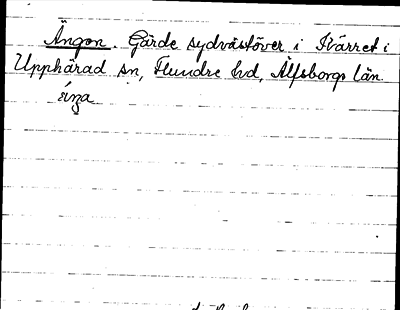 Ängon. Gärde sydväst över i Kärret i
Upphärad sn, Flundre hd, Älfsborgs län.